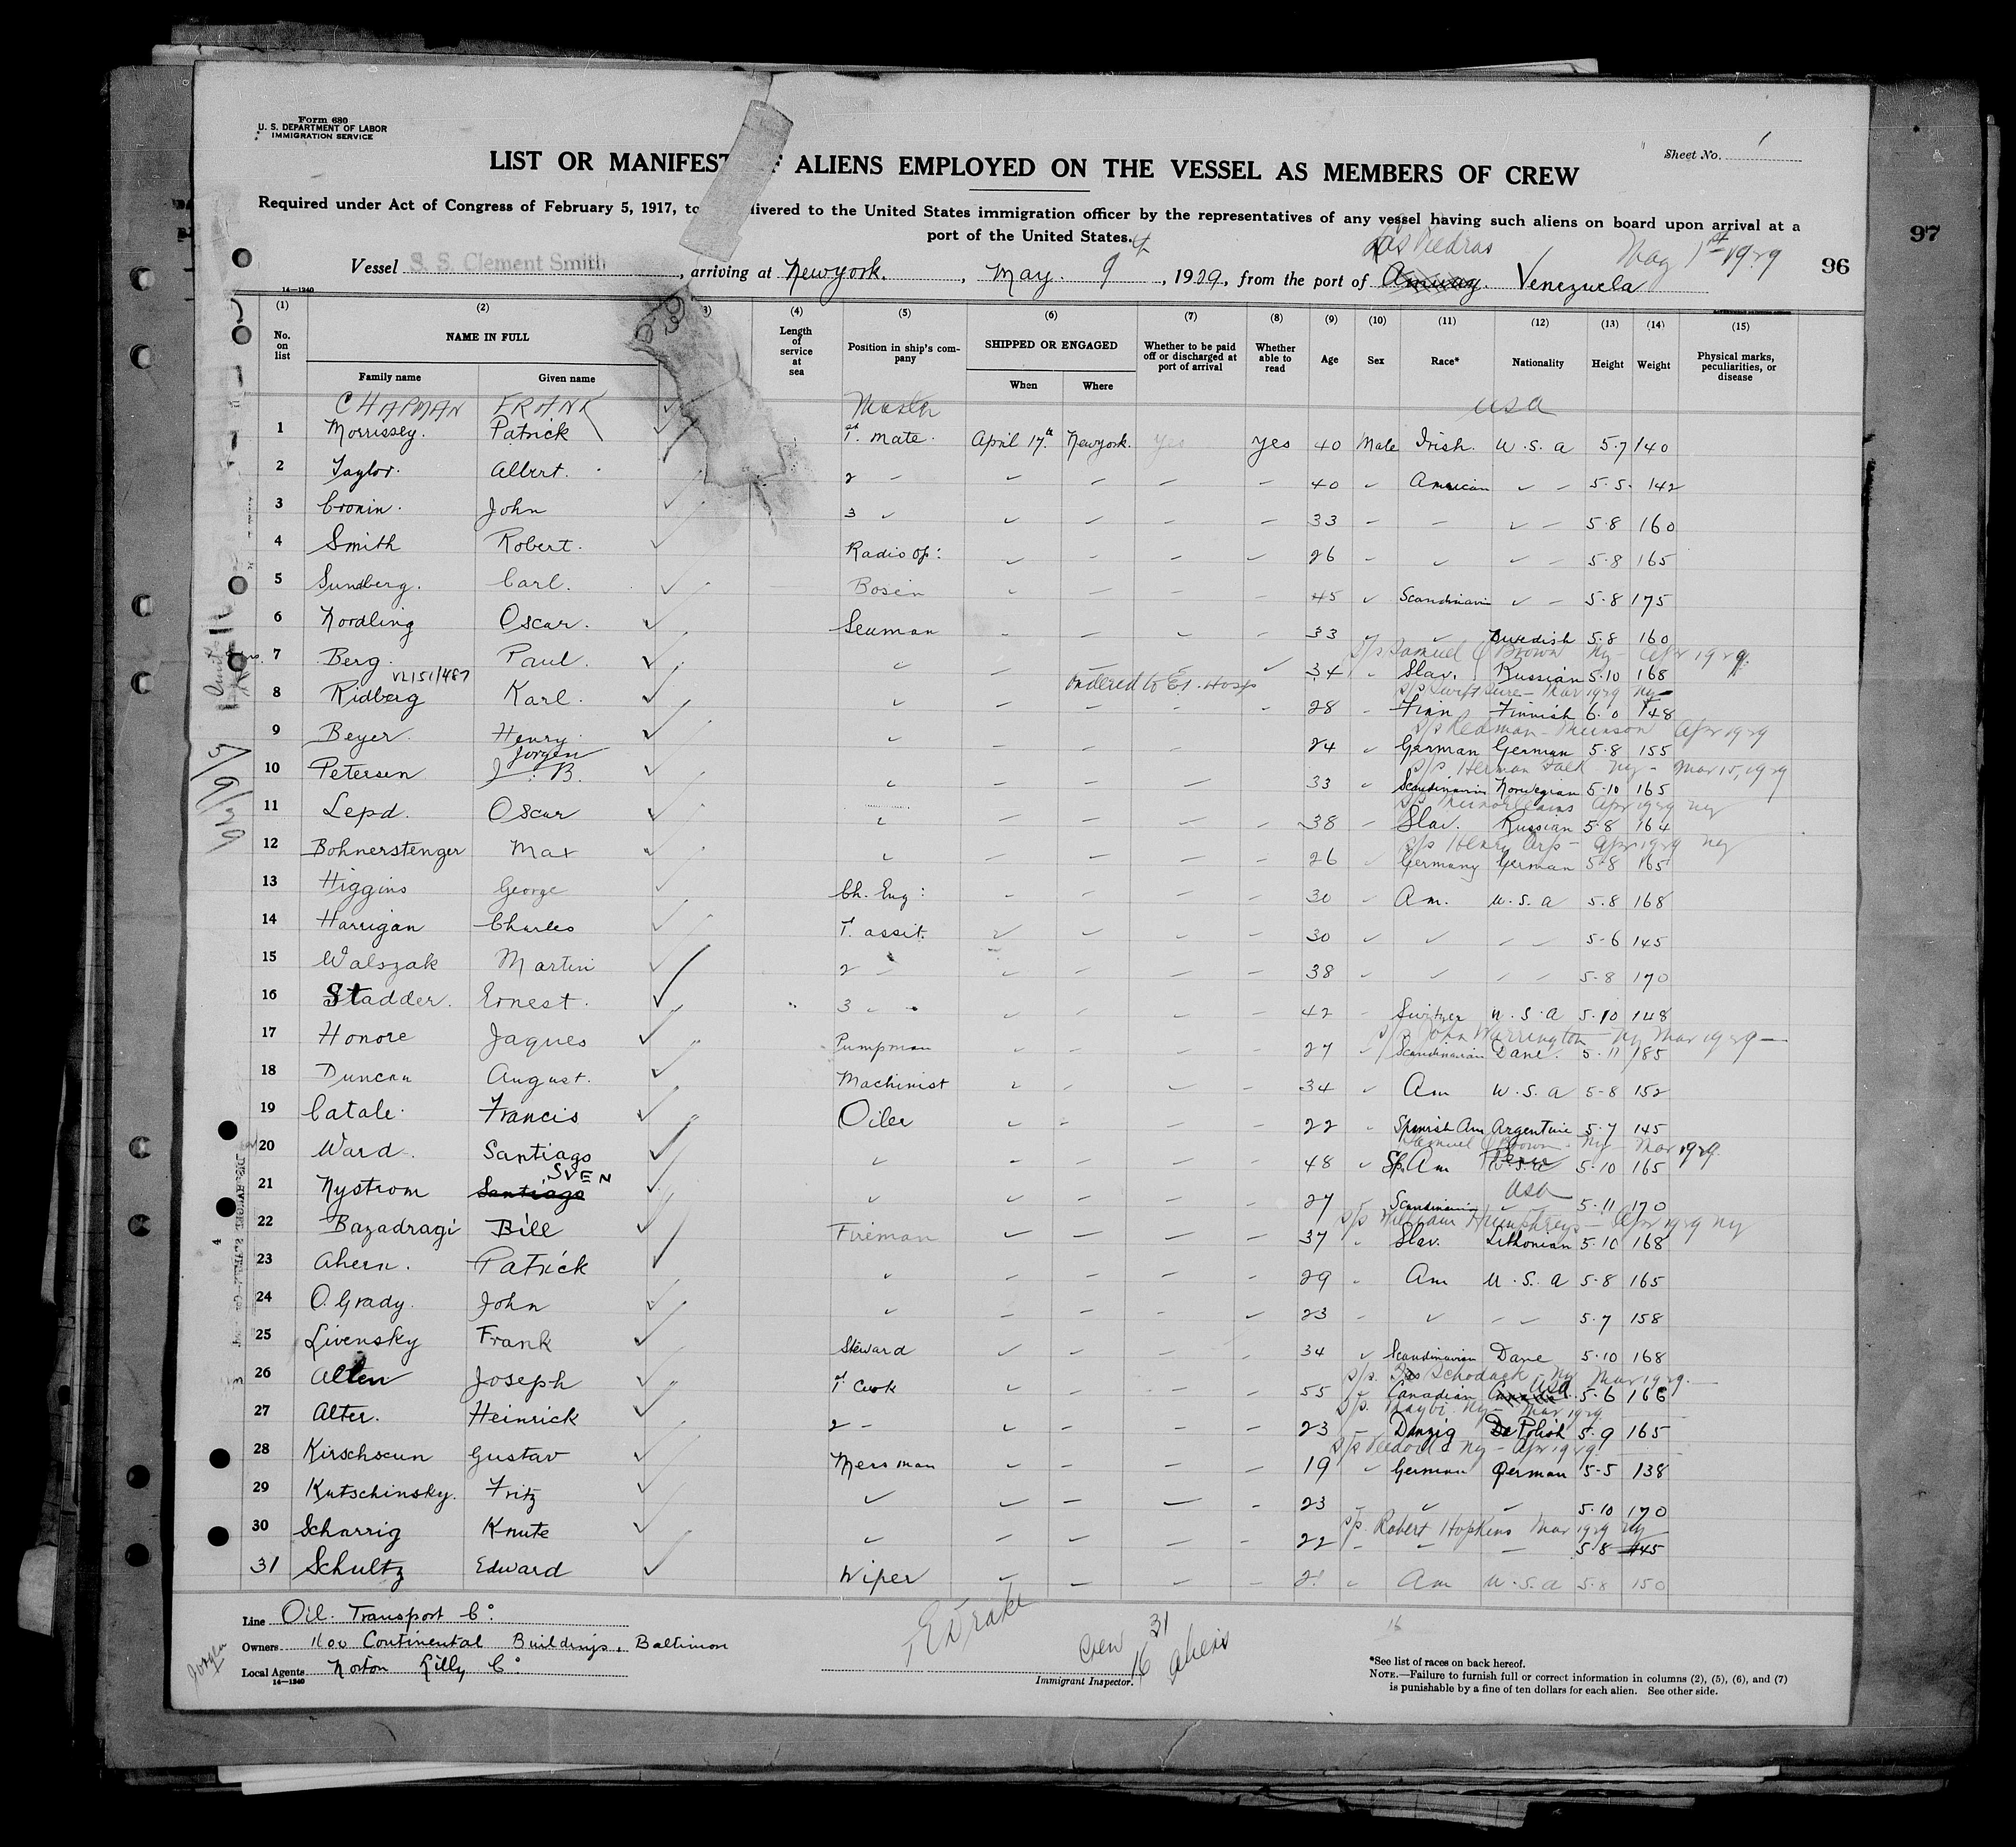 Form 680
U. S. DEPARTMENT OF LABOR
IMMIGRATION SERVICE
Sheet No. 1
LIST OR MANIFEST OF ALIENS EMPLOYED ON THE VESSEL AS MEMBERS OF CREW
Required under Act of Congress of February 5, 1917, to livered to the United States immigration officer by the representatives of any vessel having such aliens on board upon arrival at a
port of the United States.
97
96
Las Piedras May 1st 1929
Vessel S. S. Clement Smith, arriving at Newyork., May. 9th, 1929, from the port of Venezuela
14—1240
(1) (2) (3) (4) (5) (6) (7) (8) (9) (10) (11) (12) (13) (14) (15)
No. on list NAME IN FULL Length of service at sea Position in ship's company SHIPPED OR ENGAGED Whether to be paid off or discharged at port of arrival Whether able to read Age Sex Race* Nationality Height Weight Physical marks, peculiarities, or disease
Family name Given name When Where
CHAPMAN FRANK Master USA
1 Morrissey. Patrick 1st mate. April 17th Newyork. Yes Yes 40 Male Irish. U.S.A 5.7 140
2 Taylor. Albert. 2 - 40 American 5.5. 142
3 Cronin. John 3 33 5.8 160
4 Smith Robert. Radio op: 26 5.8 165
5 Sundberg. Carl. Bosin 45 Scandinavin 5.8 175
6 Nordling Oscar. Seuman 33 Swedish 5.8 160
s/s Samuel Q Brown Ny - Apr 1929.
7 Berg. Paul. 34 Slav. Russian 5.10 168
VL151/487 ordered to E.I. Hosp s/s Swiftsure - Mar 1929 Ny -
8 Ridberg Karl. 28 Finn Finnish 6.0 148
s/s Redman - Munson Apr 1929
9 Beyer. Henry. 24 German German 5.8 155
Jorgen s/s Herman Falk Ny - Mar 15, 1929
10 Petersen J. B. 33 Scandinavin Norwegian 5.10 165
Apr 1929 Ny
11 Lepd. Oscar 38 Slav. Russian 5.8 164
s/s Henry - Apr 1929 Ny
12 Bohnerstenger Max 26 Germany German 5.8 165
13 Higgins George Ch. Eng: 30 Am. U.S.A 5.8 168
14 Harrigan Charles 1. assit. 30 5-6 145
15 Walszak Martin 2 - 38 5.8 170
16 Stadder. Ernest. 3 42 Switzer U.S.A 5.10 148
s/s John Warrington - Ny Mar 1929 -
17 Honore Jaques Pumpman 27 Scandinavian Dane. 5.11 185
18 Duncan August. Machinist 34 Am U.S.A 5-8 152
19 Catale. Francis Oiler 22 Spanish Am Argentine 5.7 145
Samuel Q Brown - Ny - Mar 1929
20 Ward. Santiago 48 Sp. Am 5.10 165
SVEN USA
21 Nystrom Santiago 27 Scandinavin 5.11 170
s/s William Humphreys - Apr 1929 Ny
22 Bazadragi Bill Fireman 37 Slav. Lithonian 5.10 168
23 Ahern. Patrick 29 Am U.S.A 5.8 165
24 O. Grady. John 23 5.7 158
25 Livensky Frank Steward 34 Scandinavian Dane 5.10 168
s/s. Schodack Ny Mar 1929. -
USA
26 Allen Joseph 1st Cook 55 Canadian Canada 5.6 168
s/s. Ny - Mar 1929
27 Alter. Heinrick 2 - 23 Danzig Polish 5.9 165
Ny - Apr 1929
28 Kirschseun Gustav Mess man 19 German German 5-5 138
29 Kutschinsky. Fritz 23 5.10 170
s/s. Robert Hopkins Mar 1929 Ny -
30 Scharrig Knute 22 5.8 145
31 Schultz Edward Wiper Am U.S.A 5.8 150
5/9/29
Line Oil. Transport Co.
Owners 1600 Continental Buildings, Baltimon
Local Agents Norton Lilly Co.
14—1240
Jorgen
Drake
Crew 31
16 Aliens
16
Immigrant Inspector.
*See list of races on back hereof.
NOTE.—Failure to furnish full or correct information in columns (2), (5), (6), and (7)
is punishable by a fine of ten dollars for each alien. See other side.